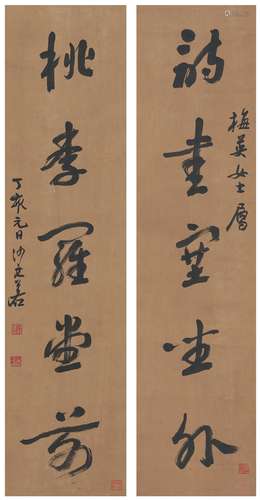 詩書塞坐外
梅英女士屬
桃李羅堂前
丁亥元日沙文若